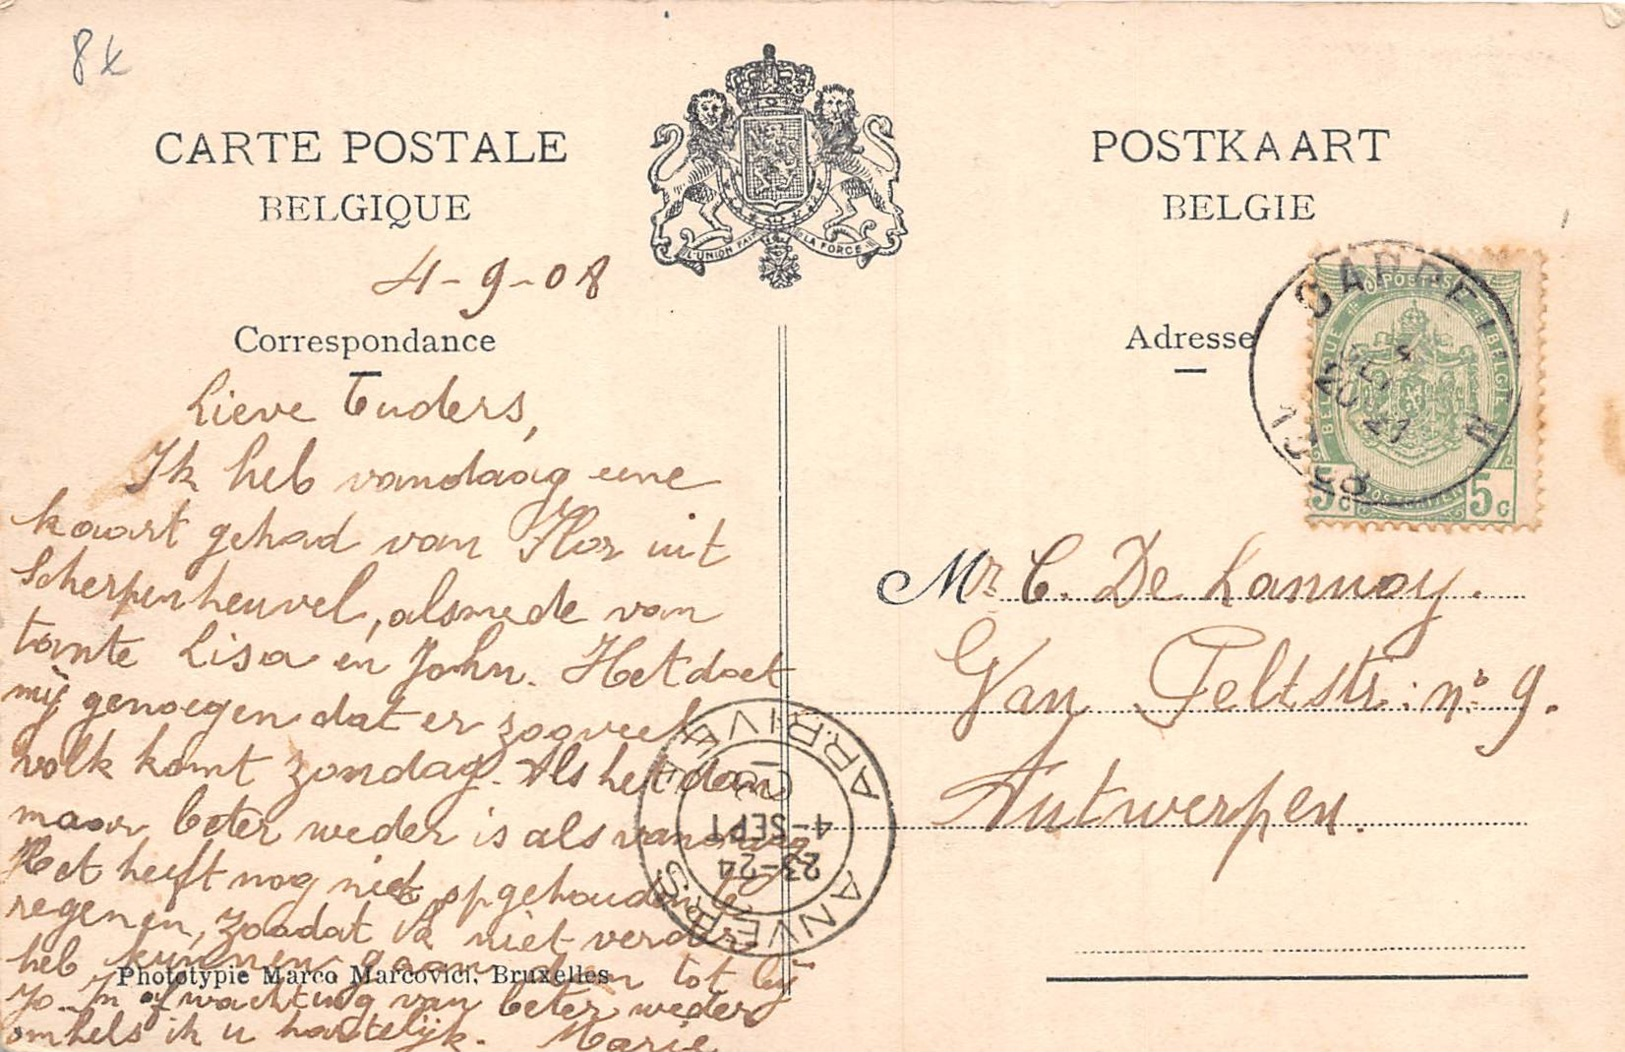 8
CARTE POSTALE
BELGIQUE
POSTKAART
BELGIE
L'UNION FAIT LA FORCE
4-9-08
Correspondance
Adresse
Lieve Ouders,
Ik heb vandaag eene
kaart gehad van Flor uit
Scherpenheuvel, alsmede van
tante Lisa en John. Het doet
mij genoegen dat er zooveel
volk komt zondag. Als het dan
maar beter weder is als vandaag
Het heeft nog niet opgehouden te
regenen, zoodat ik niet verder
heb kunnen gaan dan tot bij
Jo. In afwachting van beter weder
omhels ik u hartelijk. Marie
Phototypie Marco Marcovici, Bruxelles
CAPPELLEN
1908
POSTES
BELGIQUE
BELGIË
POSTERIJEN
5c 5c
Mr C. De Lannoy.
Van Peltstr: no 9.
Antwerpen.
ANVERS ARRIVÉE
23-24
4-SEPT
08